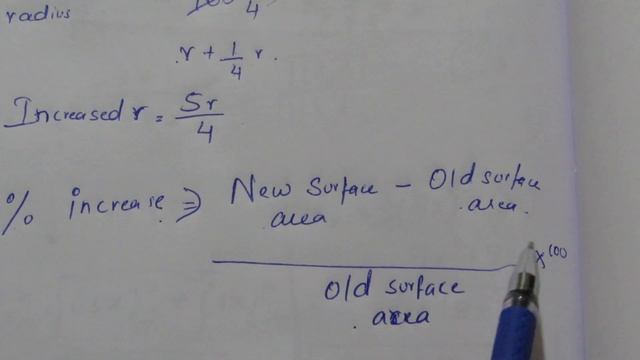 radius
4
r + 1/4 r.
Increased r = 5r/4
% increase ⇒ New surface area - Old surface area.
x100
Old surface area